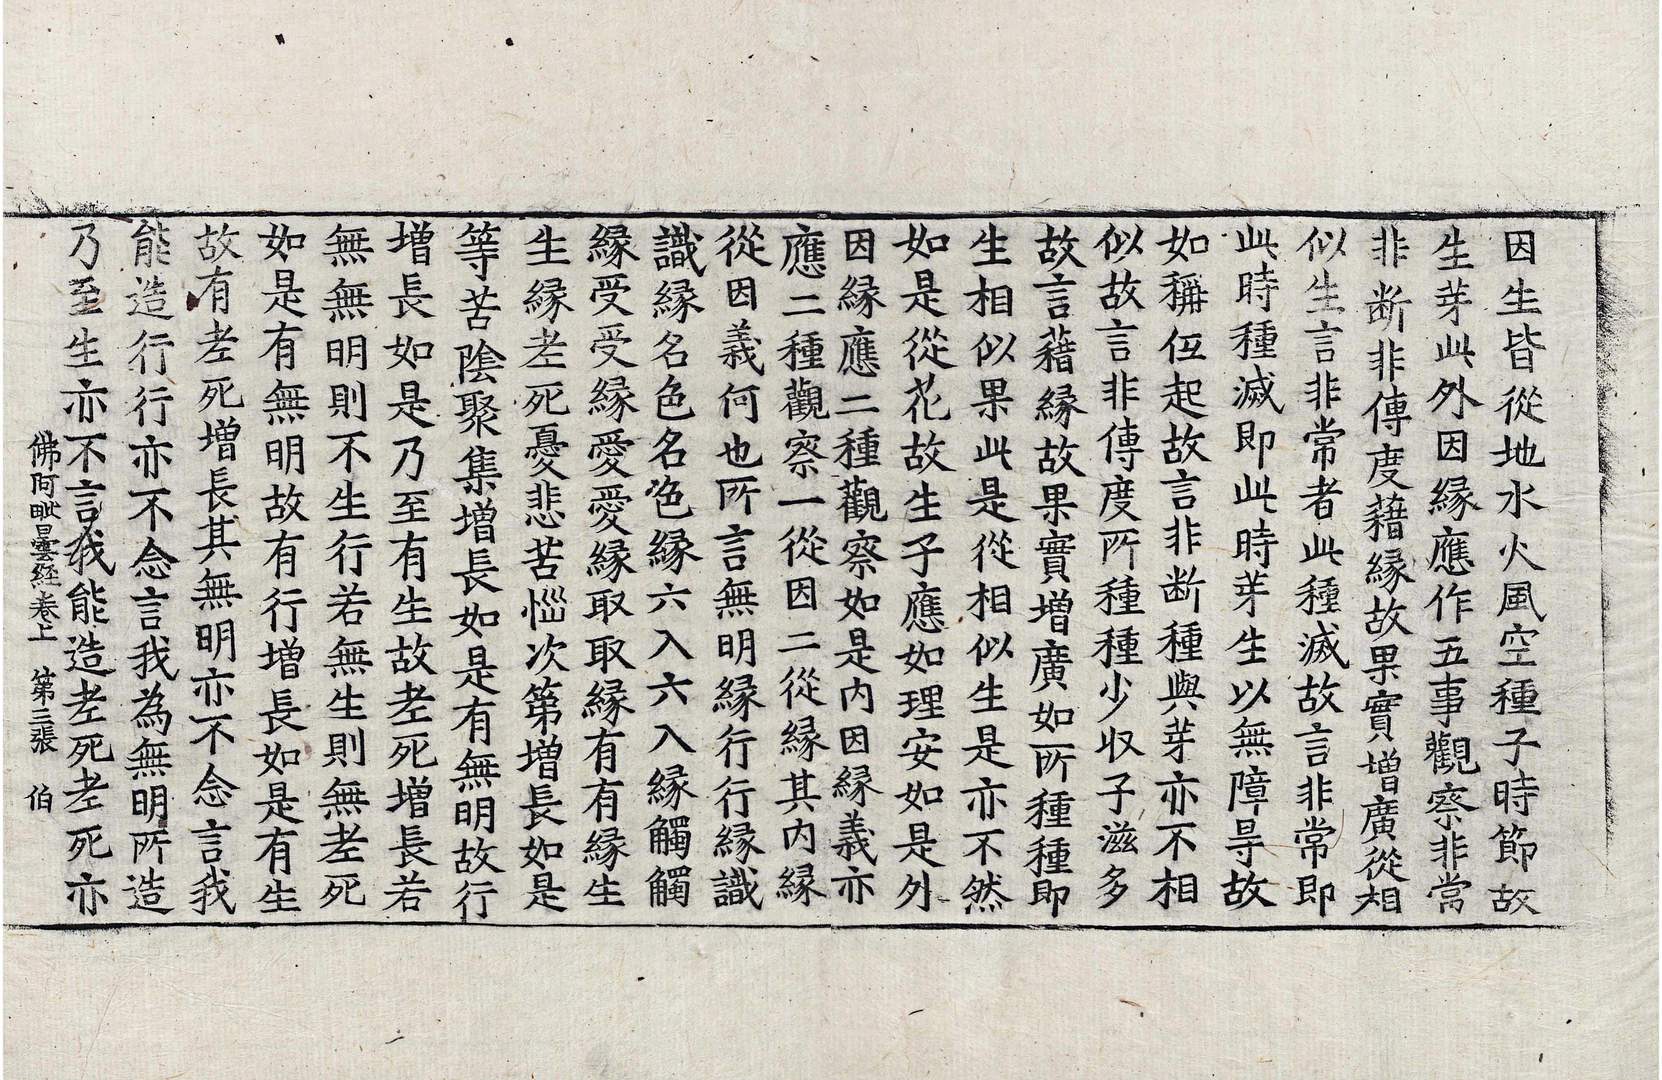 因生皆從地水火風空種子時節故
生芽此外因緣應作五事觀察非常
非断非傳度藉緣故果實增廣從相
似生言非常者此種滅故言非常即
此時種滅即此時芽生以無障㝵故
如稱伍起故言非断種與芽亦不相
似故言非傳度所種種少収子滋多
故言藉緣故果實增廣如所種種即
生相似果此是從相似生是亦不然
如是從花故生子應如理安如是外
因緣應二種觀察如是内因緣義亦
應二種觀察一從因二從緣其内緣
從因義何也所言無明緣行行緣識
識緣名色名色緣六入六入緣觸觸
緣受受緣愛愛緣取取緣有有緣生
生緣老死憂悲苦惱次第增長如是
等苦陰聚集增長如是有無明故行
增長如是乃至有生故老死增長若
無無明則不生行若無生則無老死
如是有無明故有行增長如是有生
故有老死增長其無明亦不念言我
能造行行亦不念言我為無明所造
乃至生亦不言我能造老死老死亦
佛阿毗曇經卷上 第三張 伯